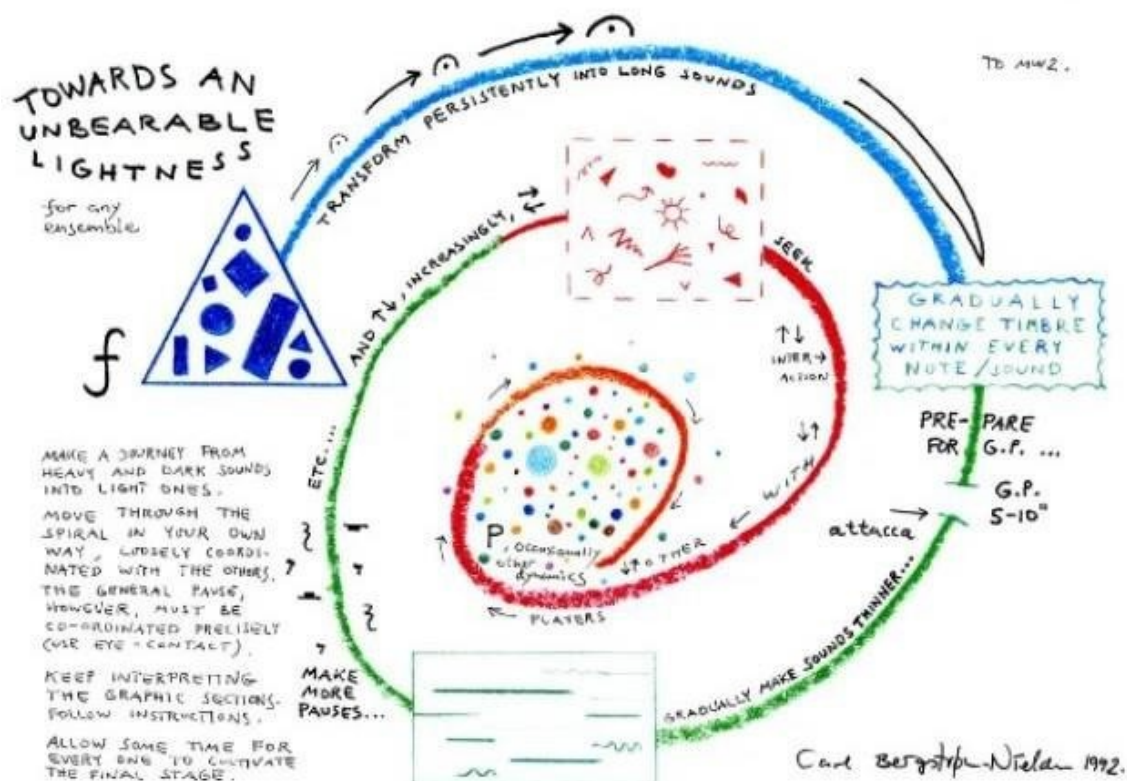 TOWARDS AN
UNBEARABLE
LIGHTNESS
for any
ensemble
TO MW2.
f
TRANSFORM PERSISTENTLY INTO LONG SOUNDS
GRADUALLY
CHANGE TIMBRE
WITHIN EVERY
NOTE/SOUND
PRE-PARE
FOR G.P. ...
G.P.
5-10"
attacca
GRADUALLY MAKE SOUNDS THINNER...
MAKE
MORE
PAUSES...
ETC....
AND ↑↓, INCREASINGLY, ↑↓
SEEK
↑↓
INTER→
ACTION
↓↑
WITH
↓↑ OTHER
PLAYERS
P, occasionally
other
dynamics
MAKE A JOURNEY FROM
HEAVY AND DARK SOUNDS
INTO LIGHT ONES.
MOVE THROUGH THE
SPIRAL IN YOUR OWN
WAY, LOOSELY COORDI-
NATED WITH THE OTHERS.
THE GENERAL PAUSE,
HOWEVER, MUST BE
CO-ORDINATED PRECISELY
(USE EYE-CONTACT).
KEEP INTERPRETING
THE GRAPHIC SECTIONS.
FOLLOW INSTRUCTIONS.
ALLOW SOME TIME FOR
EVERY ONE TO CULTIVATE
THE FINAL STAGE.
Carl Bergstrøm-Nielsen 1992.